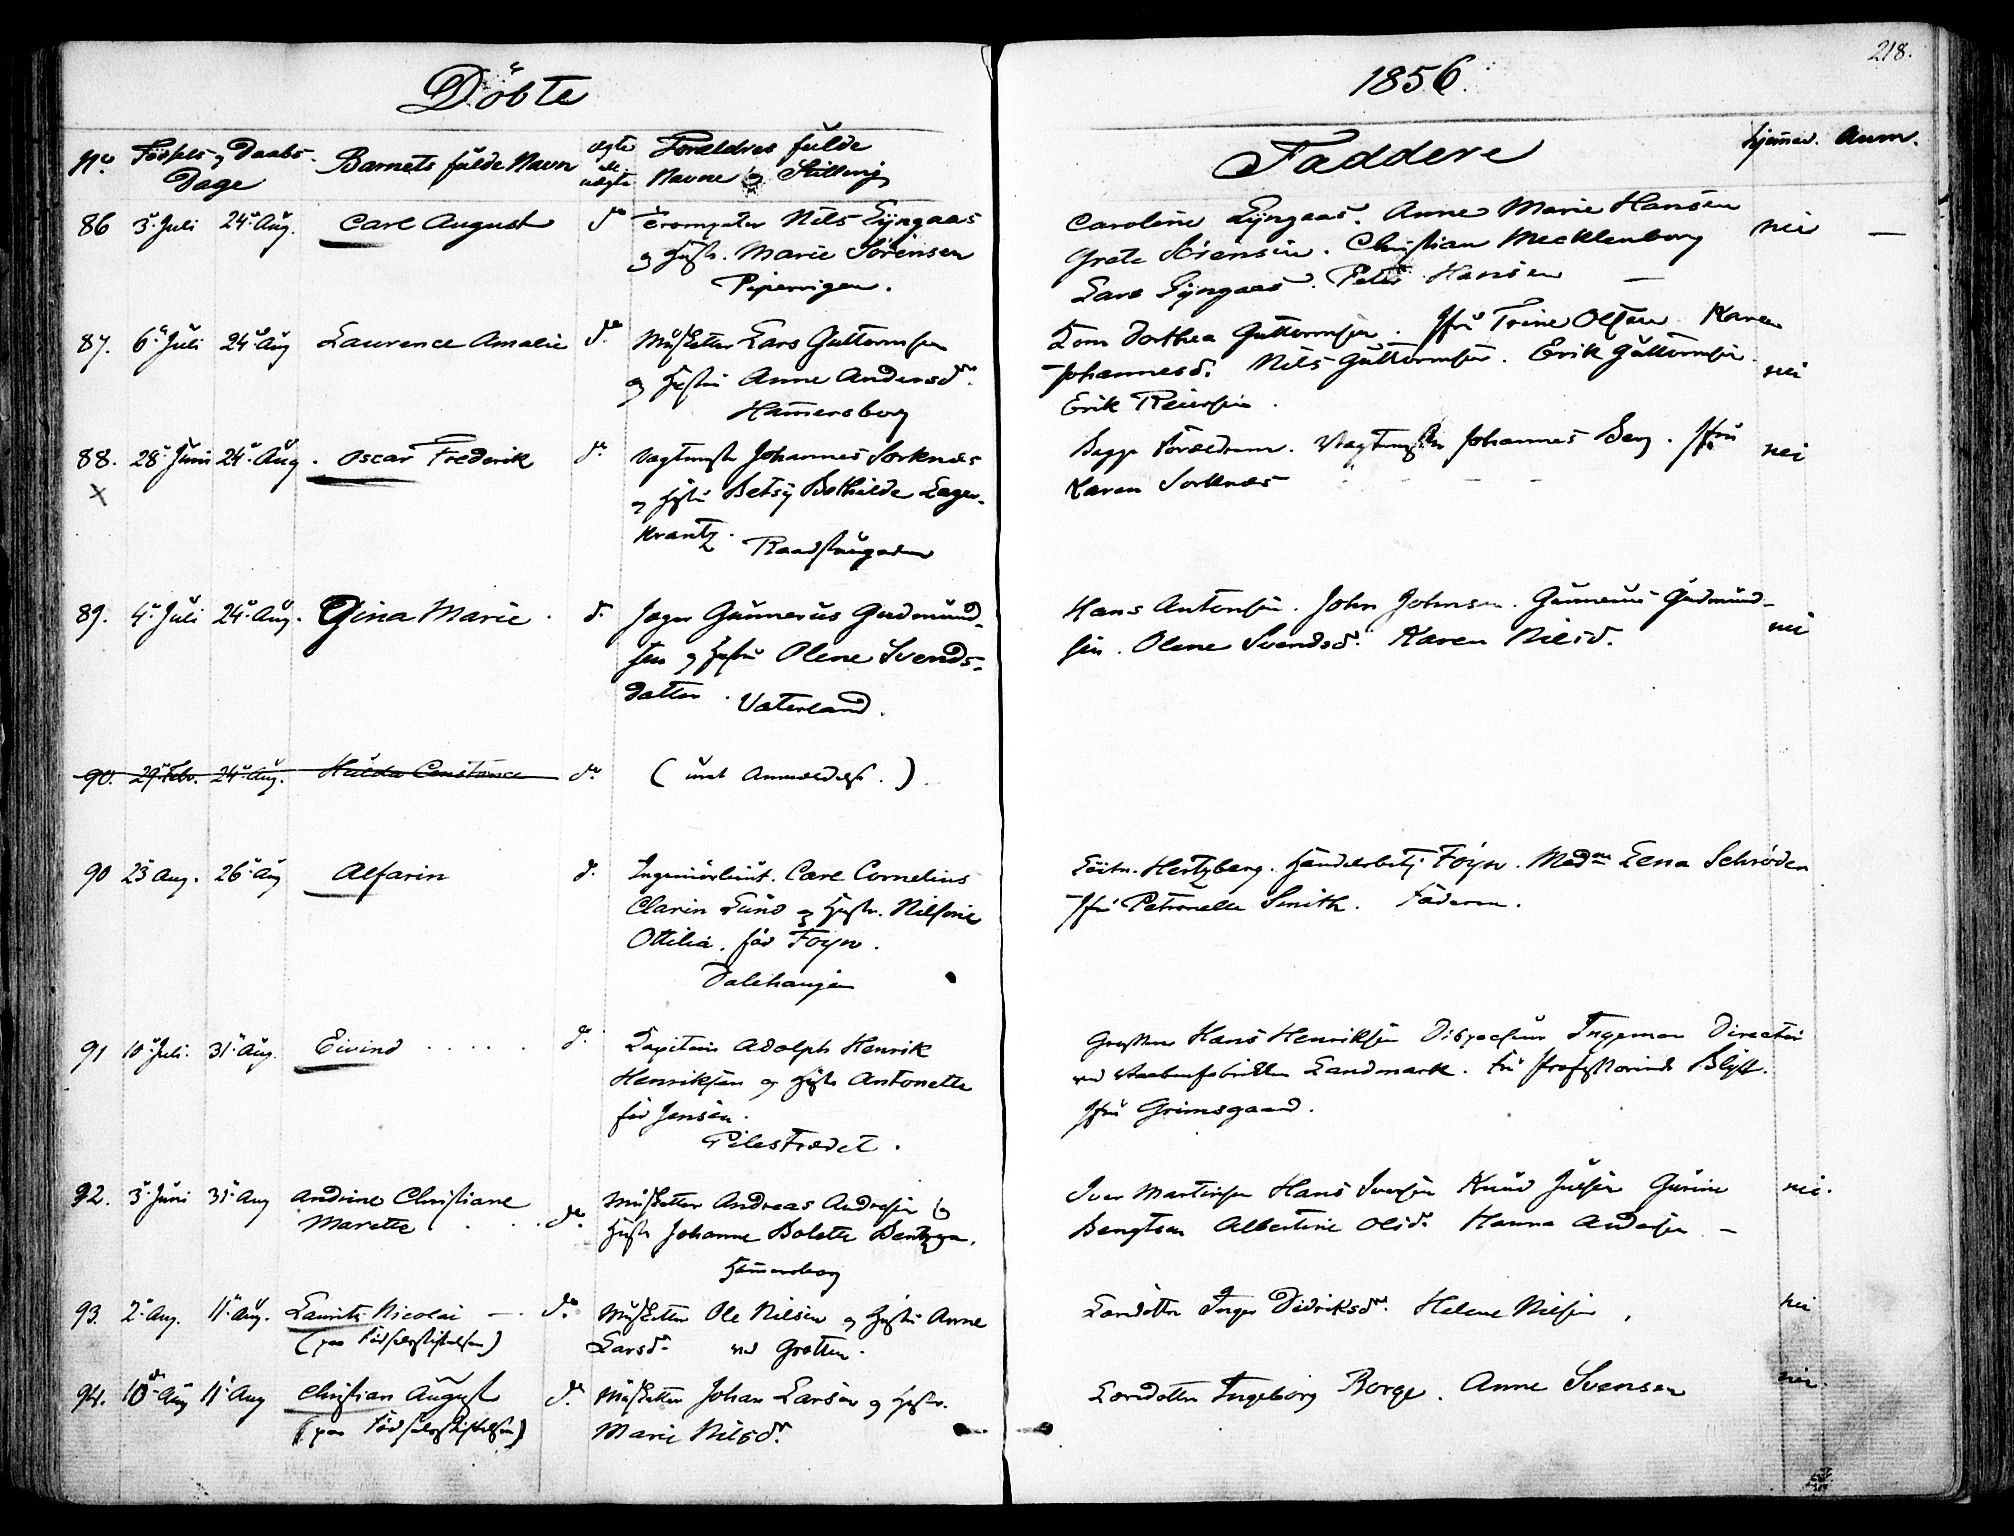 218.
Döbte 1856.
No Födsels- og Daabs-Dage Barnets fulde Navn ægte el. uægte Forældres fulde Navne og Stilling Faddere hjemmed. Anm.
86 3. Juli 24. Aug. Carl August do Trompeter Nils Lÿngaas
og Hustr. Marie Sörensen
Pipervigen.
Caroline Lÿngaas. Anne Marie Hansen nei —
Grete Sörensen. Christian Mecklenborg
Lars Lÿngaas. Peter Hansen —
87. 6. Juli 24. Aug Laurence Amalie do Musketter Lars Guttormsen
og Hustru Anne Andersd.
Hammersborg
Dorthea Guttormsen. Jfru Trine Olsen Karen
Johannesd. Nils Guttormsen. Erik Guttormsen. nei
Erik Reiersen.
88. 28. Juni 24. Aug. Oscar Frederik do Vagtmstr Johannes Sorknæs
og Hustru Betsÿ Bothilde Lager-
krantz.
Raadstugaden
Begge Forældrene. Vagtmester Johannes Berg. Jfru nei
Karen Sorknæs - - - -
x
89. 4. Juli 24. Aug. Gina Marie. d. Jæger Gunnerus Gudmund-
sen og Hustru Olene Svends-
datter. Vaterland.
Hans Antonsen. John Johnsen. Gunnerius Gudmund-
sen. Olene Svendsd. Karen Nilsd. nei
90. 29. Febr. 24. Aug. Hulda Constance do ( Anmeldelse.)
90 23 Aug. 26. Aug Alfarin d. Ingeniörlieut. Carl Cornelius
Clarin Lund og Hustr. Nilsine
Ottilia. föd Foyn.
Dalehaugen
Hertzberg. Handelsbetj. Foyn. Madme Lena Schröder
Jfru Petronelle Smith. Faderen.
91 10. Juli. 31. Aug. Eivind . . . . . d. Kapitain Adolph Henrik
Henriksen og Hustr Antonette
föd Jensen.
Pilestrædet.
Hans Henriksen Ingeman Directör
ved Vaabenfabrikken Landmark. Fru Professorinde Blÿtt.
Jfru Grimsgaard.
92. 3. Juni 31. Aug Andrine Christiane
Marette . . . do Musketter Andreas Andresen og
Hustr Johanne Bolette
Hammersborg
Iver Martinsen Hans Iversen Knud Gurine nei.
Bengtsen Albertine Olsd. Hanna Andersen —
93. 2. Aug. 11. Aug. Laurits Nicolai —
(paa Födselsstiftelsen) do. Musketter Ole Nilsen og Hustru Anne
Larsd. ved Grotten.
Inger Didriksd. Helene Nilsen, nei
94. 10. Aug 11. Aug Christian August
(paa Födselsstiftelsen) d. Musketter Johan Larsen og Hustr.
Marie Nilsd.
Ingeborg Borge. Anne Svensen nei.